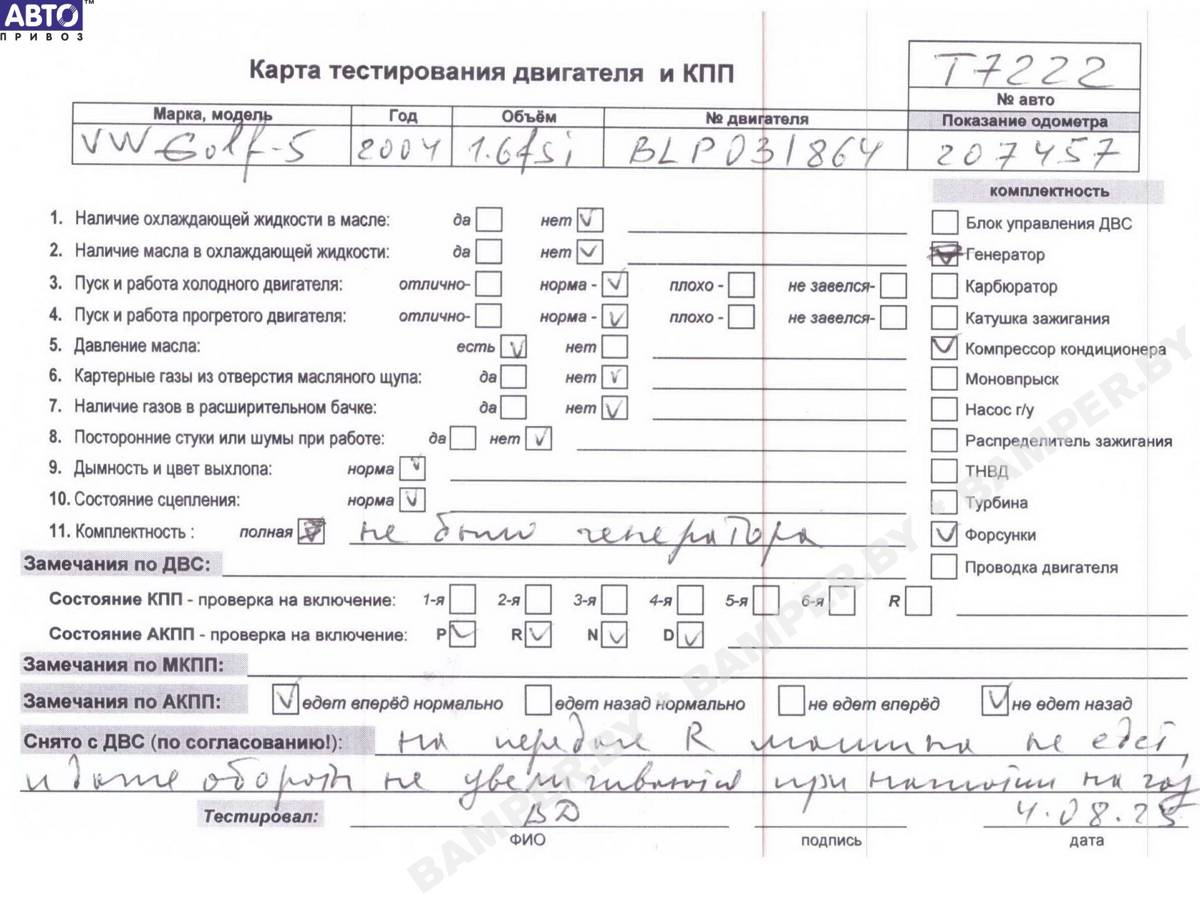 АВТО™
ПРИВОЗ
Карта тестирования двигателя и КПП
T7222
№ авто
Марка, модель Год Объём № двигателя Показание одометра
VW Golf-5 2004 1.6fsi BLP031864 207457
комплектность
1. Наличие охлаждающей жидкости в масле: да нет Блок управления ДВС
2. Наличие масла в охлаждающей жидкости: да нет Генератор
3. Пуск и работа холодного двигателя: отлично- норма - плохо - не завелся- Карбюратор
4. Пуск и работа прогретого двигателя: отлично- норма - плохо - не завелся- Катушка зажигания
5. Давление масла: есть нет Компрессор кондиционера
6. Картерные газы из отверстия масляного щупа: да нет Моновпрыск
7. Наличие газов в расширительном бачке: да нет Насос г/у
8. Посторонние стуки или шумы при работе: да нет Распределитель зажигания
9. Дымность и цвет выхлопа: норма ТНВД
10. Состояние сцепления: норма Турбина
11. Комплектность : полная не было генератора Форсунки
Замечания по ДВС: Проводка двигателя
Состояние КПП - проверка на включение: 1-я 2-я 3-я 4-я 5-я 6-я R
Состояние АКПП - проверка на включение: P R N D
Замечания по МКПП:
Замечания по АКПП: едет вперёд нормально едет назад нормально не едет вперёд не едет назад
Снято с ДВС (по согласованию!): на передаче R машина не едет,
и даже обороты не увеличиваются при нажатии на газ
Тестировал: ВД 4.08.25
ФИО подпись дата
BAMPER.BY • BAMPER.BY • BAMPER.BY • BAMPER.BY